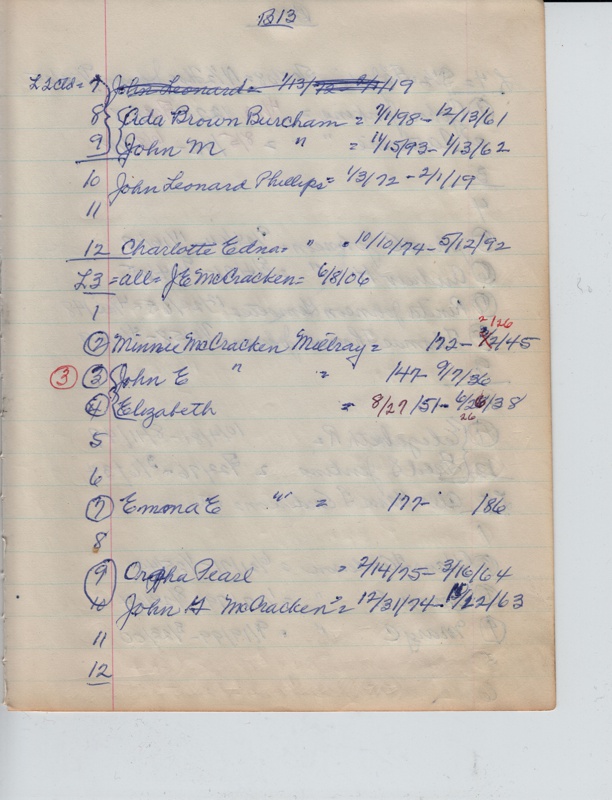 B13
L2 ctd = 7 John Leonard = 1/13/72 - 2/1/19
8 Ada Brown Burcham = 9/1/98 - 12/13/61
9 John M " = 11/15/93 - 1/13/62
10 John Leonard Phillips = 1/3/72 - 2/1/19
11
12 Charlotte Edna = " = 10/10/74 - 5/12/92
L3 = all = J.E. McCracken = 6/8/06
1
2/26
2 Minnie McCracken Millray = 172 - 2/2/45
3 3 John E " = 147 - 9/17/36
4 Elizabeth = 8/27/51 - 6/26/38
26
5
6
7 Emma E " = 177 - 186
8
9 Orpha Pearl = 2/14/75 - 3/16/64
10 John H McCracken " = 12/31/74 - /22/63
11
12